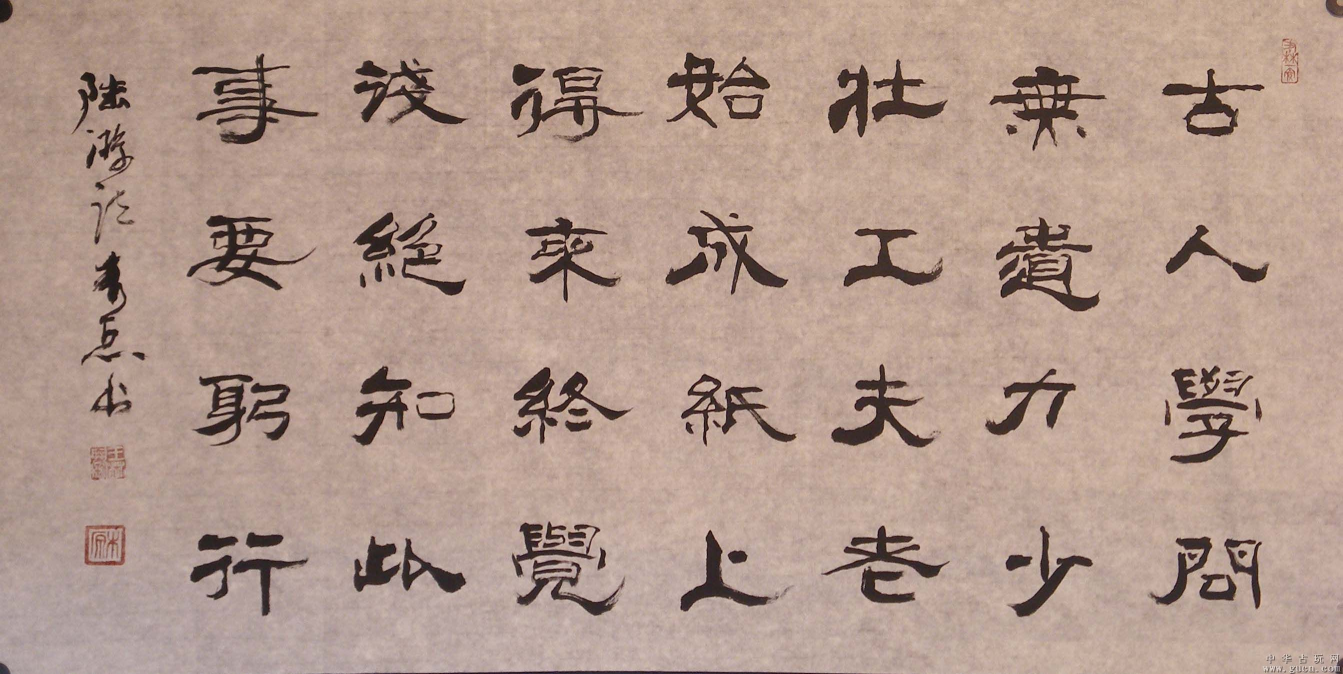 古人學問
無遺力少
壯工夫老
始成紙上
得來終覺
淺絕知此
事要躬行
陸游詩 書
中华古玩网
www.gucn.com